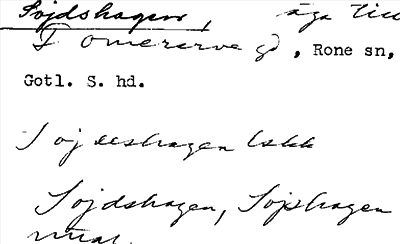 Söjdshagen, äga till
Tomererve gd, Rone sn,
Gotl. S. hd.
Sojdeshagen Lskk
Söjdshagen, Söjshagen